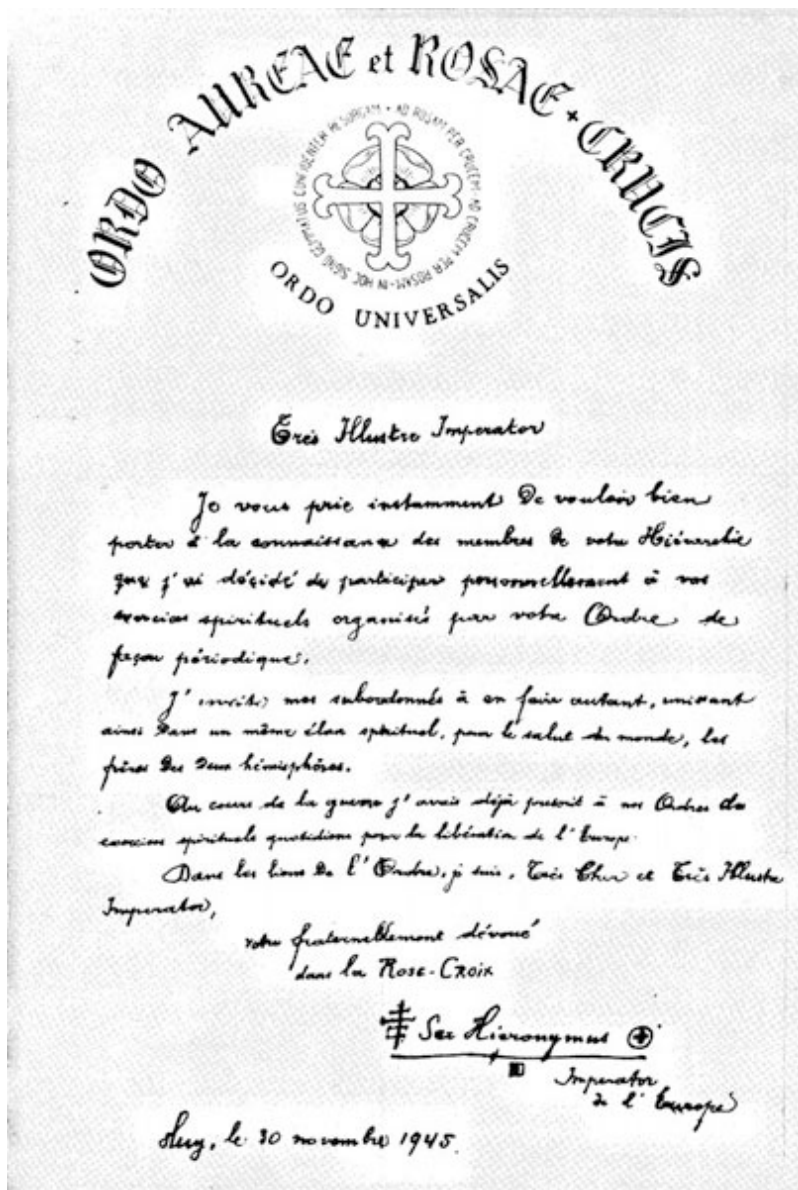 ORDO AUREAE et ROSAE + CRUCIS
AD ROSAM PER CRUCEM AD CRUCEM PER ROSAM - IN HOC SIGNO GEMMATUS CONFIDENTEM RESURGAM
ORDO UNIVERSALIS
Très Illustre Imperator
Je vous prie instamment de vouloir bien
porter à la connaissance des membres de votre Hiérarchie
que j'ai décidé de participer personnellement à vos
exercices spirituels organisés par votre Ordre de
façon périodique.
J'invite mes subordonnés à en faire autant, unissant
ainsi dans un même élan spirituel, pour le salut du monde, les
frères des deux hémisphères.
Au cours de la guerre j'avais déjà prescrit à nos Ordres des
exercices spirituels quotidiens pour la libération de l'Europe.
Dans les liens de l'Ordre, je suis, Très Cher et Très Illustre
Imperator,
votre fraternellement dévoué
dans la ROSE-CROIX
Sar Hieronymus
Imperator
de l'Europe
Huy, le 30 novembre 1945.